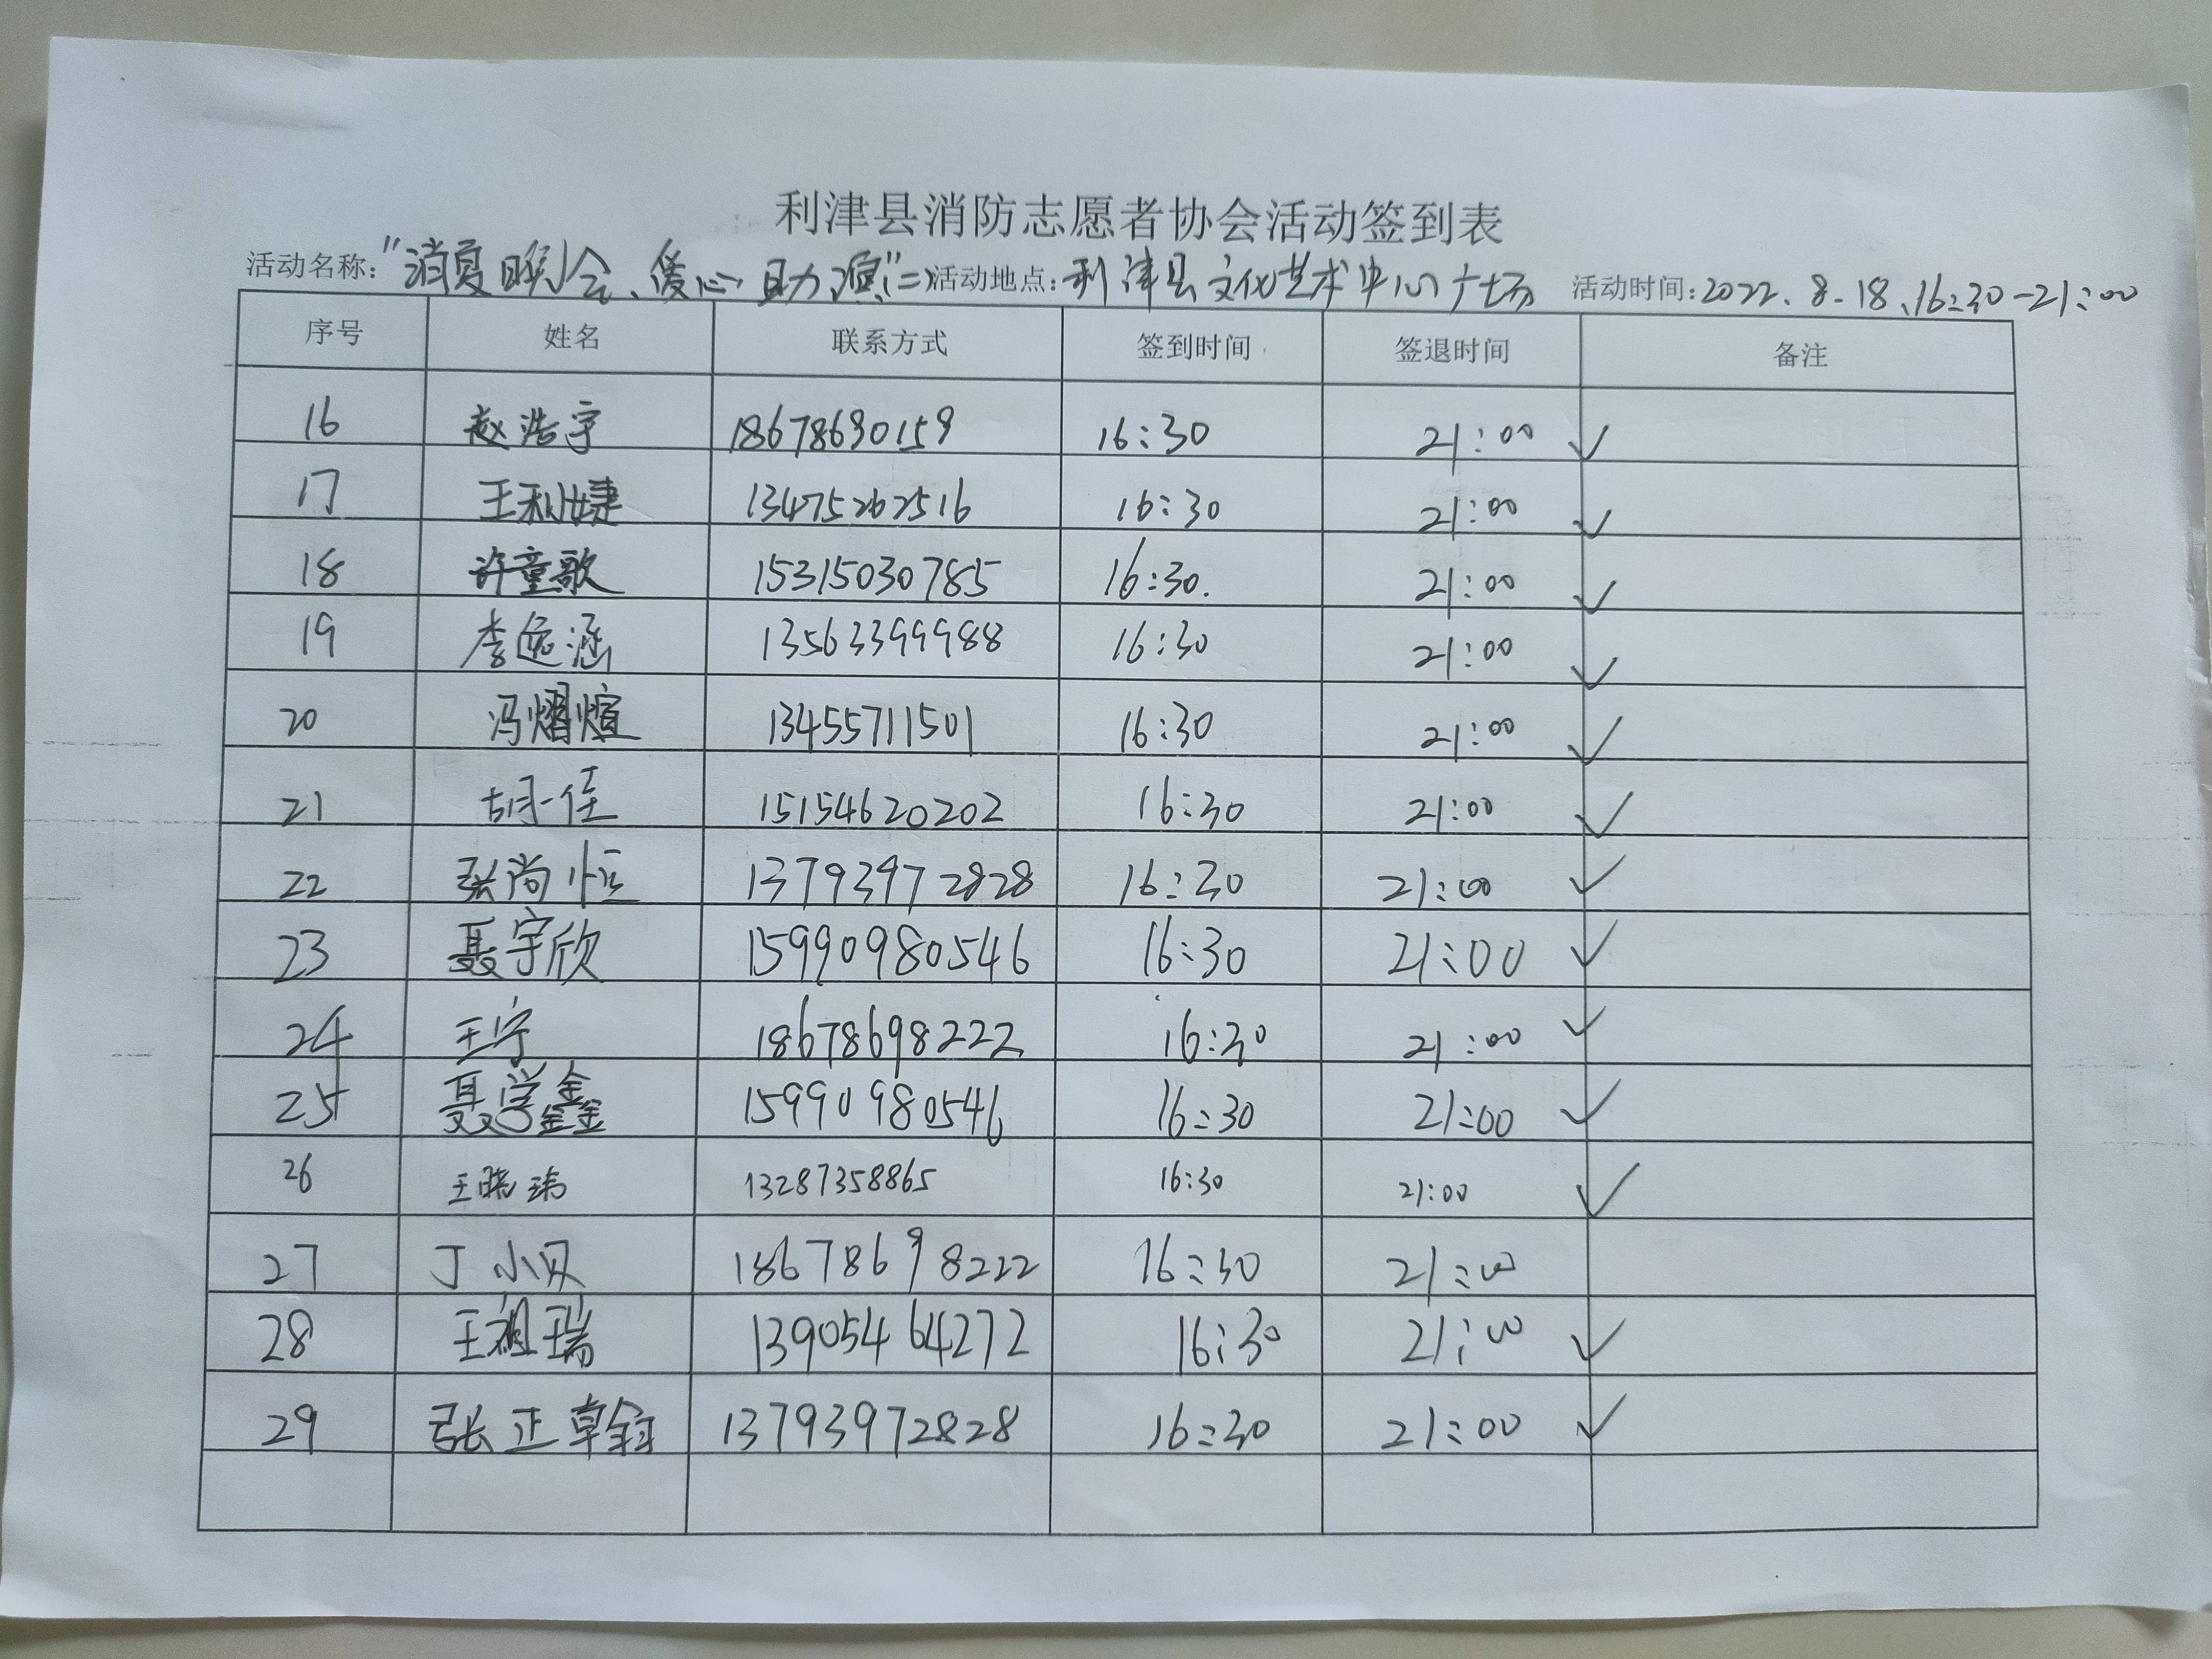 利津县消防志愿者协会活动签到表
活动名称:"消夏晚会、爱心助演"二 活动地点:利津县文化艺术中心广场 活动时间:2022.8.18、16:30-21:00
序号 姓名 联系方式 签到时间 签退时间 备注
16 赵浩宇 18678690159 16:30 21:00 ✓
17 王利婕 13475262516 16:30 21:00 ✓
18 许童歌 15315030785 16:30. 21:00 ✓
19 李逸涵 13563399988 16:30 21:00 ✓
20 冯熠煊 13455711501 16:30 21:00 ✓
21 胡一佳 15154620202 16:30 21:00 ✓
22 张尚恒 13793972828 16:30 21:00 ✓
23 聂宇欣 15990980546 16:30 21:00 ✓
24 王宁 18678698222 16:30 21:00 ✓
25 聂学鑫 15990980546 16:30 21:00 ✓
26 王晓玮 13287358865 16:30 21:00 ✓
27 丁小贝 18678698222 16:30 21:00
28 王祖瑞 13905464272 16:30 21:00 ✓
29 张正卓钰 13793972828 16:30 21:00 ✓